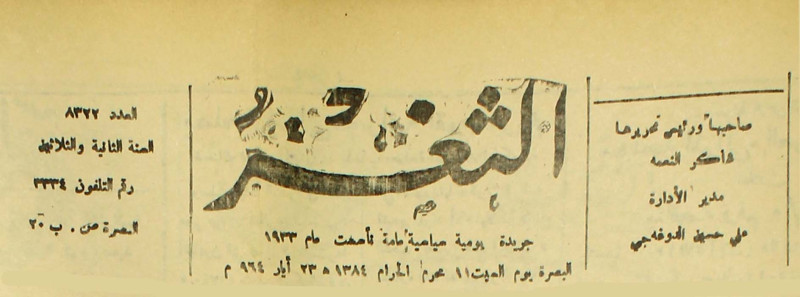 صاحبها ورئيس تحريرها
شاكر النعمه
مدير الأدارة
علي حسين الدوغه‌جي
الثغر
جريدة يومية سياسية عامة تأسست عام ١٩٣٣
البصرة يوم السبت ١١ محرم الحرام ١٣٨٤ ه ٢٣ أيار ٩٦٤ م
العدد ٨٣٢٢
السنة الثانية والثلاثين
رقم التلفون ٣٣٣٤
البصرة ص . ب ٢٥